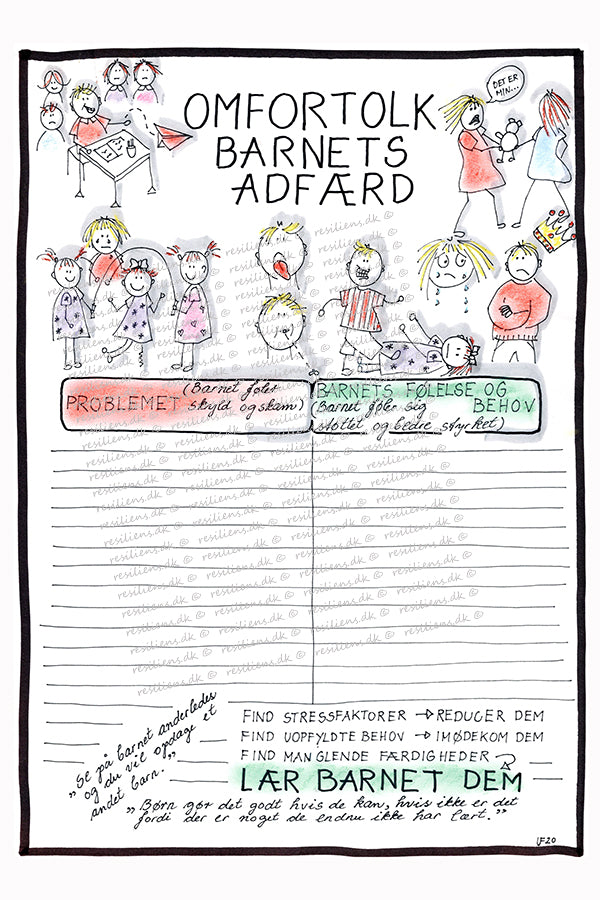 OMFORTOLK
BARNETS
ADFÆRD
DET ER
MIN...
PROBLEMET (Barnet føler
skyld og skam)
BARNETS FØLELSE OG
BEHOV
(Barnet føler sig
støttet og bedre styrket)
resiliens.dk ©
"Se på barnet anderledes
og du vil opdage et
andet barn."
FIND STRESSFAKTORER → REDUCER DEM
FIND UOPFYLDTE BEHOV → IMØDEKOM DEM
FIND MANGLENDE FÆRDIGHEDER →
LÆR BARNET DEM
"Børn gør det godt hvis de kan, hvis ikke er det
fordi der er noget de endnu ikke har lært."
UF20